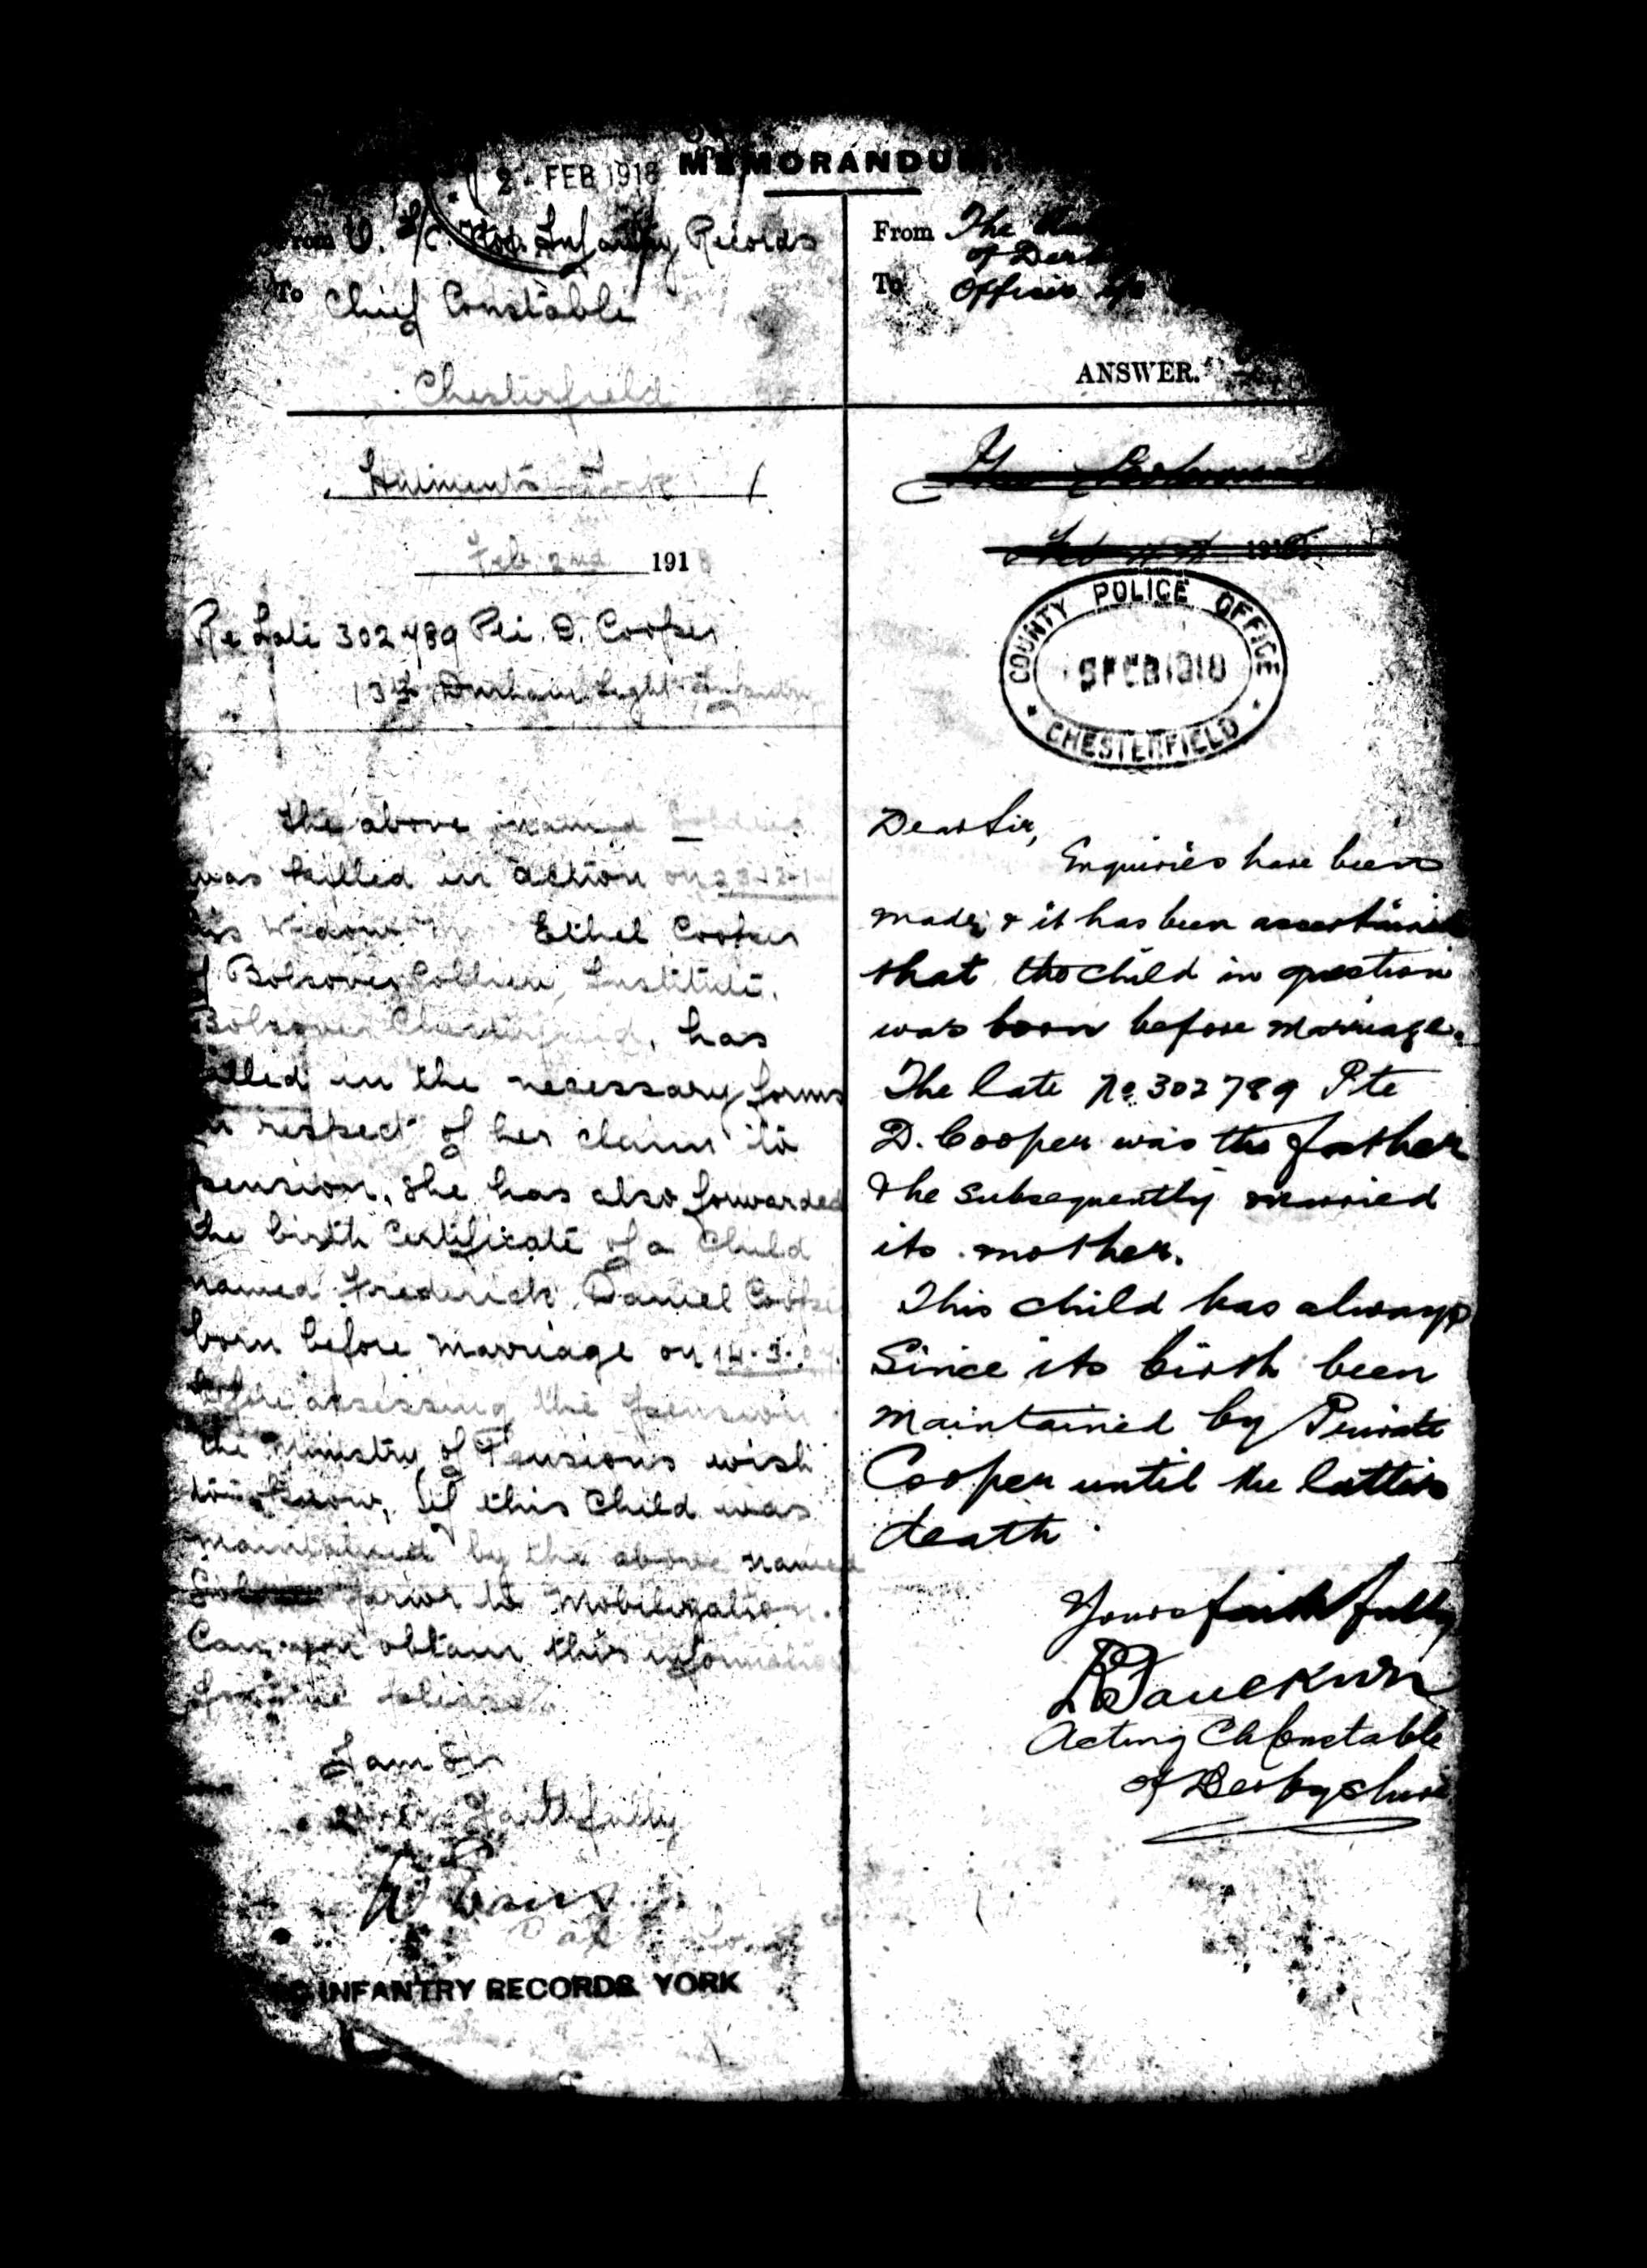 MEMORANDUM
2 - FEB 1918
From O. I/C. Infantry Records
To Chief Constable
Chesterfield
Feb 2nd 1918
Re Late 302789 Pte. D. Cooper
13th Durham Light Infantry
The above named
was killed in action on
his Widow Ethel Cooper
of Bolsover Colliery Institute,
Bolsover Chesterfield, has
filled in the necessary forms
in respect of her claim to
pension, she has also forwarded
the birth Certificate of a Child
named Frederick Daniel Cooper
born before marriage on 14.3.
before assessing the pension
the Ministry of Pensions wish
to know, if this child was
maintained by the above named
prior to Mobilization.
Can you obtain this information
please
I am Sir
Faithfully
INFANTRY RECORDS. YORK
From The
of
To Officer i/c
ANSWER.
COUNTY POLICE OFFICE
CHESTERFIELD
Dear Sir,
Enquiries have been
made, & it has been ascertained
that the child in question
was born before marriage.
The late No. 302789 Pte
D. Cooper was the father
& he subsequently married
its mother.
This child has always
since its birth been
maintained by Private
Cooper until the latters
death.
Yours faithfully
Acting Ch Constable
of Derbyshire